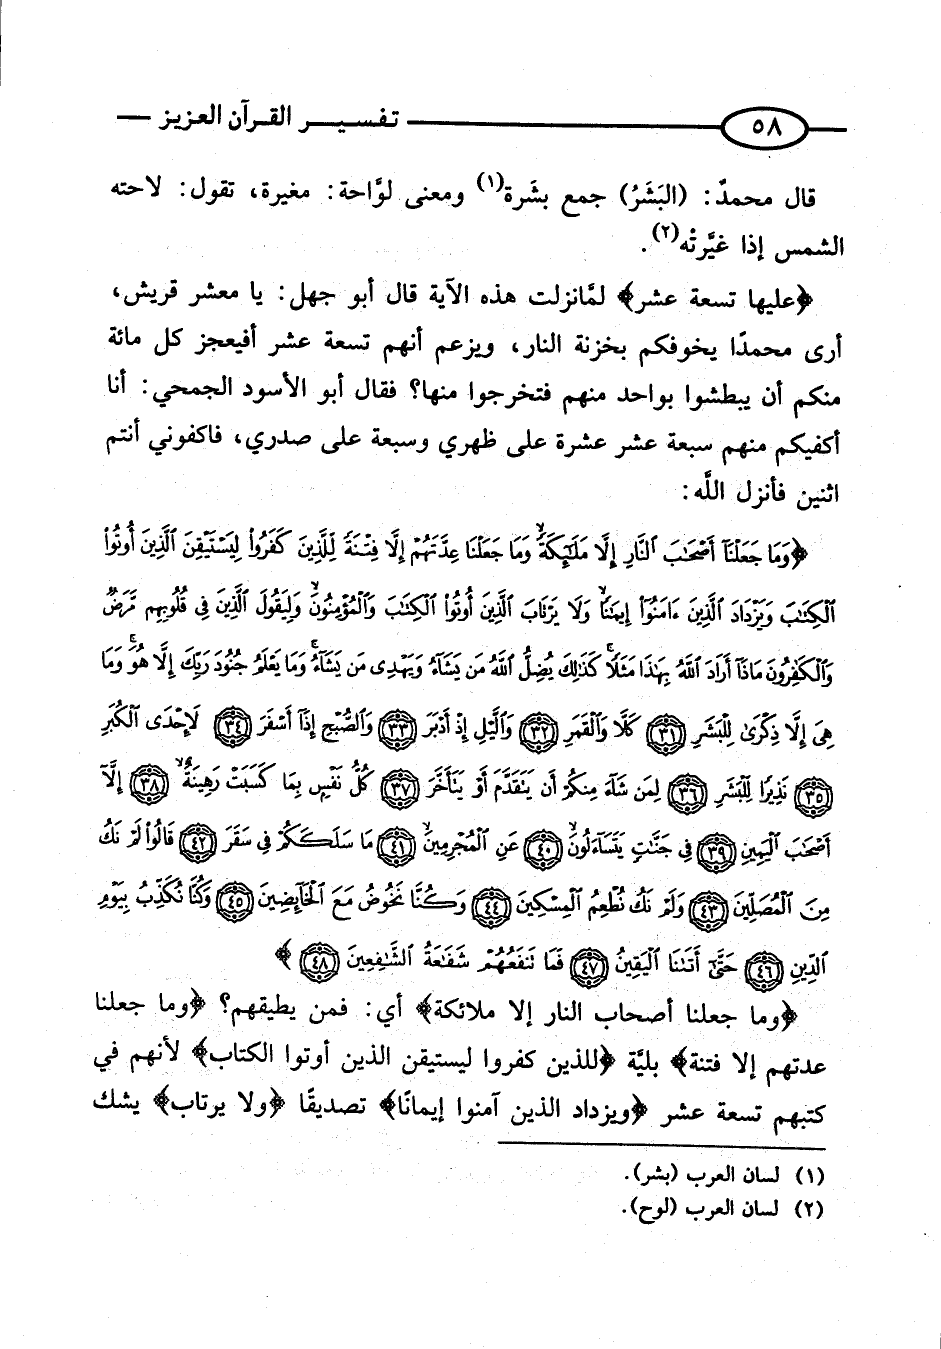 ٥٨ تفسير القرآن العزيز
قال محمدٌ: (البَشَرُ) جمع بشَرة(١) ومعنى لوَّاحة: مغيرة، تقول: لاحته
الشمس إذا غيَّرتْه(٢).
﴿عليها تسعة عشر﴾ لمَّانزلت هذه الآية قال أبو جهل: يا معشر قريش،
أرى محمدًا يخوفكم بخزنة النار، ويزعم أنهم تسعة عشر أفيعجز كل مائة
منكم أن يبطشوا بواحد منهم فتخرجوا منها؟ فقال أبو الأسود الجمحي: أنا
أكفيكم منهم سبعة عشر عشرة على ظهري وسبعة على صدري، فاكفوني أنتم
اثنين فأنزل اللَّه:
﴿وَمَا جَعَلْنَآ أَصْحَٰبَ ٱلنَّارِ إِلَّا مَلَٰٓئِكَةًۙ وَمَا جَعَلْنَا عِدَّتَهُمْ إِلَّا فِتْنَةً لِّلَّذِينَ كَفَرُواْ لِيَسْتَيْقِنَ ٱلَّذِينَ أُوتُواْ
ٱلْكِتَٰبَ وَيَزْدَادَ ٱلَّذِينَ ءَامَنُوٓاْ إِيمَٰنًاۙ وَلَا يَرْتَابَ ٱلَّذِينَ أُوتُواْ ٱلْكِتَٰبَ وَٱلْمُؤْمِنُونَۙ وَلِيَقُولَ ٱلَّذِينَ فِي قُلُوبِهِم مَّرَضٌ
وَٱلْكَٰفِرُونَ مَاذَآ أَرَادَ ٱللَّهُ بِهَٰذَا مَثَلًاۚ كَذَٰلِكَ يُضِلُّ ٱللَّهُ مَن يَشَآءُ وَيَهْدِى مَن يَشَآءُۚ وَمَا يَعْلَمُ جُنُودَ رَبِّكَ إِلَّا هُوَۚ وَمَا
هِىَ إِلَّا ذِكْرَىٰ لِلْبَشَرِ ﴿٣١﴾ كَلَّا وَٱلْقَمَرِ ﴿٣٢﴾ وَٱلَّيْلِ إِذْ أَدْبَرَ ﴿٣٣﴾ وَٱلصُّبْحِ إِذَآ أَسْفَرَ ﴿٣٤﴾ إِنَّهَا لَإِحْدَى ٱلْكُبَرِ
﴿٣٥﴾ نَذِيرًا لِّلْبَشَرِ ﴿٣٦﴾ لِمَن شَآءَ مِنكُمْ أَن يَتَقَدَّمَ أَوْ يَتَأَخَّرَ ﴿٣٧﴾ كُلُّ نَفْسٍۭ بِمَا كَسَبَتْ رَهِينَةٌۙ ﴿٣٨﴾ إِلَّآ
أَصْحَٰبَ ٱلْيَمِينِ ﴿٣٩﴾ فِى جَنَّٰتٍ يَتَسَآءَلُونَۙ ﴿٤٠﴾ عَنِ ٱلْمُجْرِمِينَۙ ﴿٤١﴾ مَا سَلَكَكُمْ فِى سَقَرَ ﴿٤٢﴾ قَالُواْ لَمْ نَكُ
مِنَ ٱلْمُصَلِّينَ ﴿٤٣﴾ وَلَمْ نَكُ نُطْعِمُ ٱلْمِسْكِينَ ﴿٤٤﴾ وَكُنَّا نَخُوضُ مَعَ ٱلْخَآئِضِينَ ﴿٤٥﴾ وَكُنَّا نُكَذِّبُ بِيَوْمِ
ٱلدِّينِ ﴿٤٦﴾ حَتَّىٰٓ أَتَىٰنَا ٱلْيَقِينُ ﴿٤٧﴾ فَمَا تَنفَعُهُمْ شَفَٰعَةُ ٱلشَّٰفِعِينَ ﴿٤٨﴾ ﴾
﴿وما جعلنا أصحاب النار إلا ملائكة﴾ أي: فمن يطيقهم؟ ﴿وما جعلنا
عدتهم إلا فتنة﴾ بليَّة ﴿للذين كفروا ليستيقن الذين أوتوا الكتاب﴾ لأنهم في
كتبهم تسعة عشر ﴿ويزداد الذين آمنوا إيمانًا﴾ تصديقًا ﴿ولا يرتاب﴾ يشك
(١) لسان العرب (بشر).
(٢) لسان العرب (لوح).